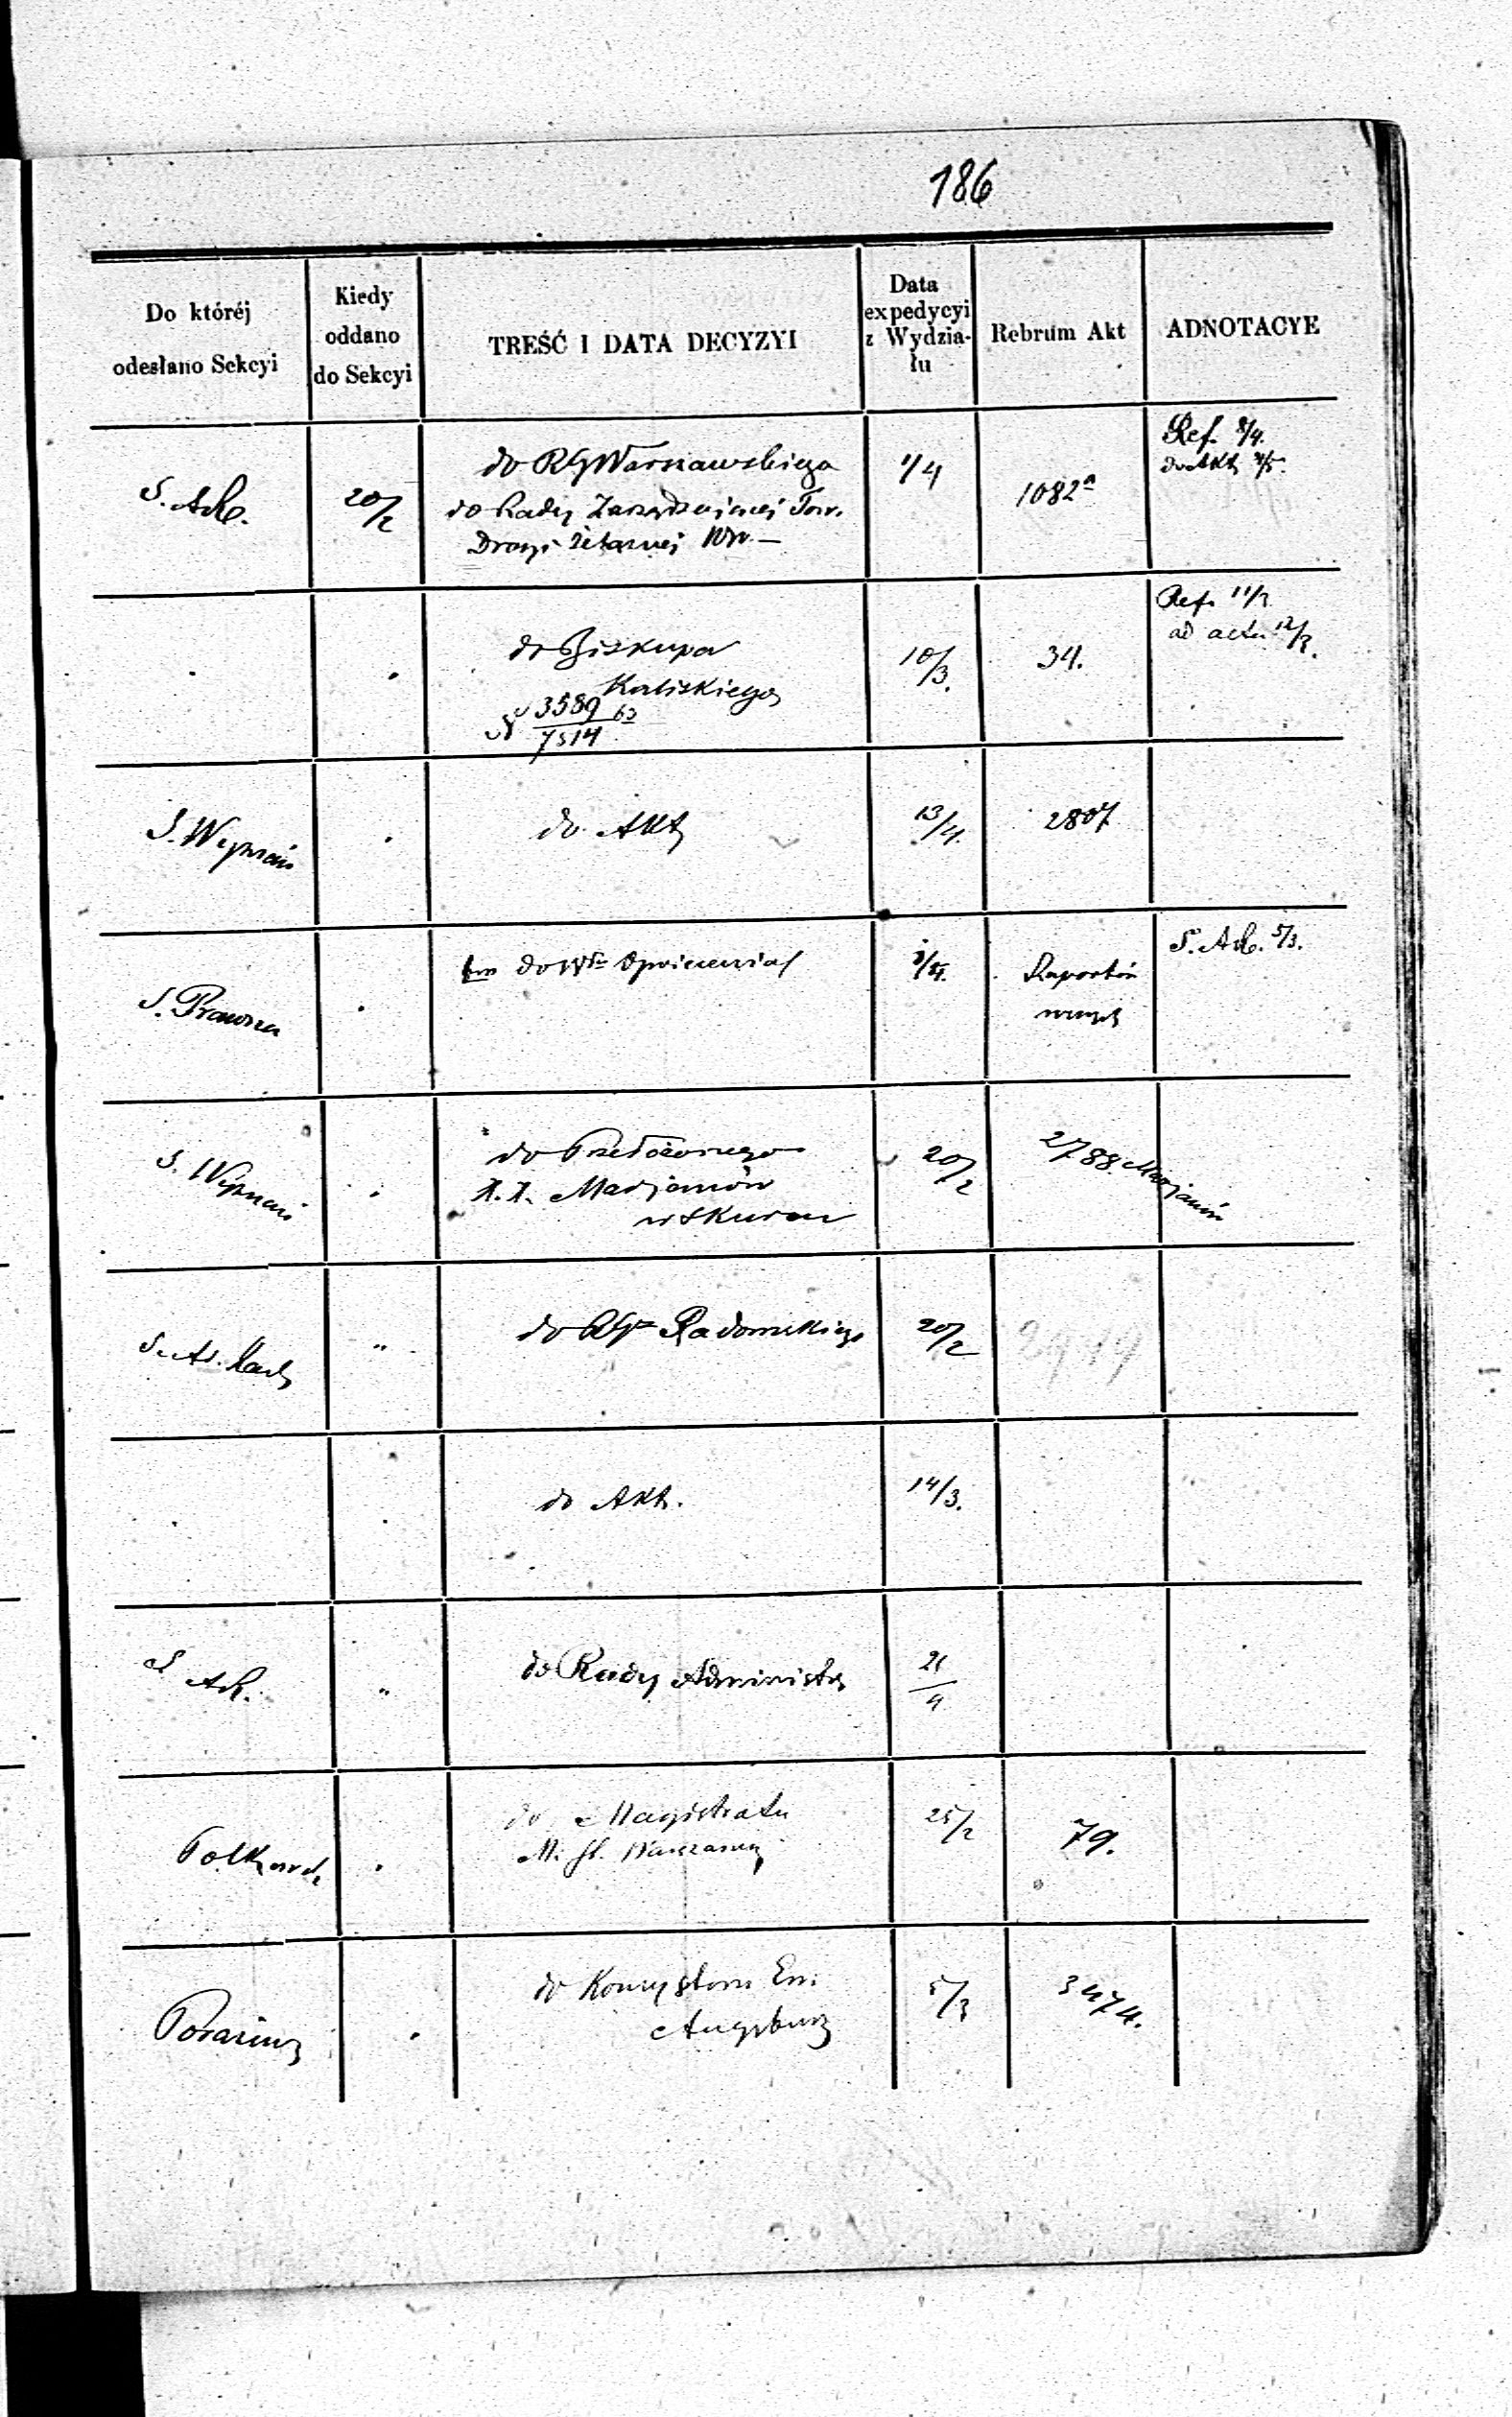 186
Do któréj
odesłano Sekcyi
Kiedy
oddano
do Sekcyi
TREŚĆ I DATA DECYZYI
Data
expedycyi
z Wydzia-
łu
Rebrum Akt
ADNOTACYE
S. Ad.
20/2
do RG Warszawskiego
do Rady Zarządzającej Tow.
Drogi żelaznej
1/4
1082a
Ref. 8/4.
do Akt
do Biskupa
Kaliskiego
N 3589 63
7514
10/3.
34.
Ref. 11/3
ad acta 12/3.
S. Wyznań
do Akt
13/4.
2807
S. Prawna
do
S. Ad. 5/3.
S. Wyznań
do Przełożonego
X. X. Marjanów
w Skurcu
20/2
2788 Marjanów
S. Ad.
"
do Radomskiego
20/2
do Akt.
14/3.
S Ad.
"
do Rady Administr
21
4
do Magistratu
M. st. Warszawy
25/2
79.
do Konsystorz Ew.
Augsburg
5/3
3474.